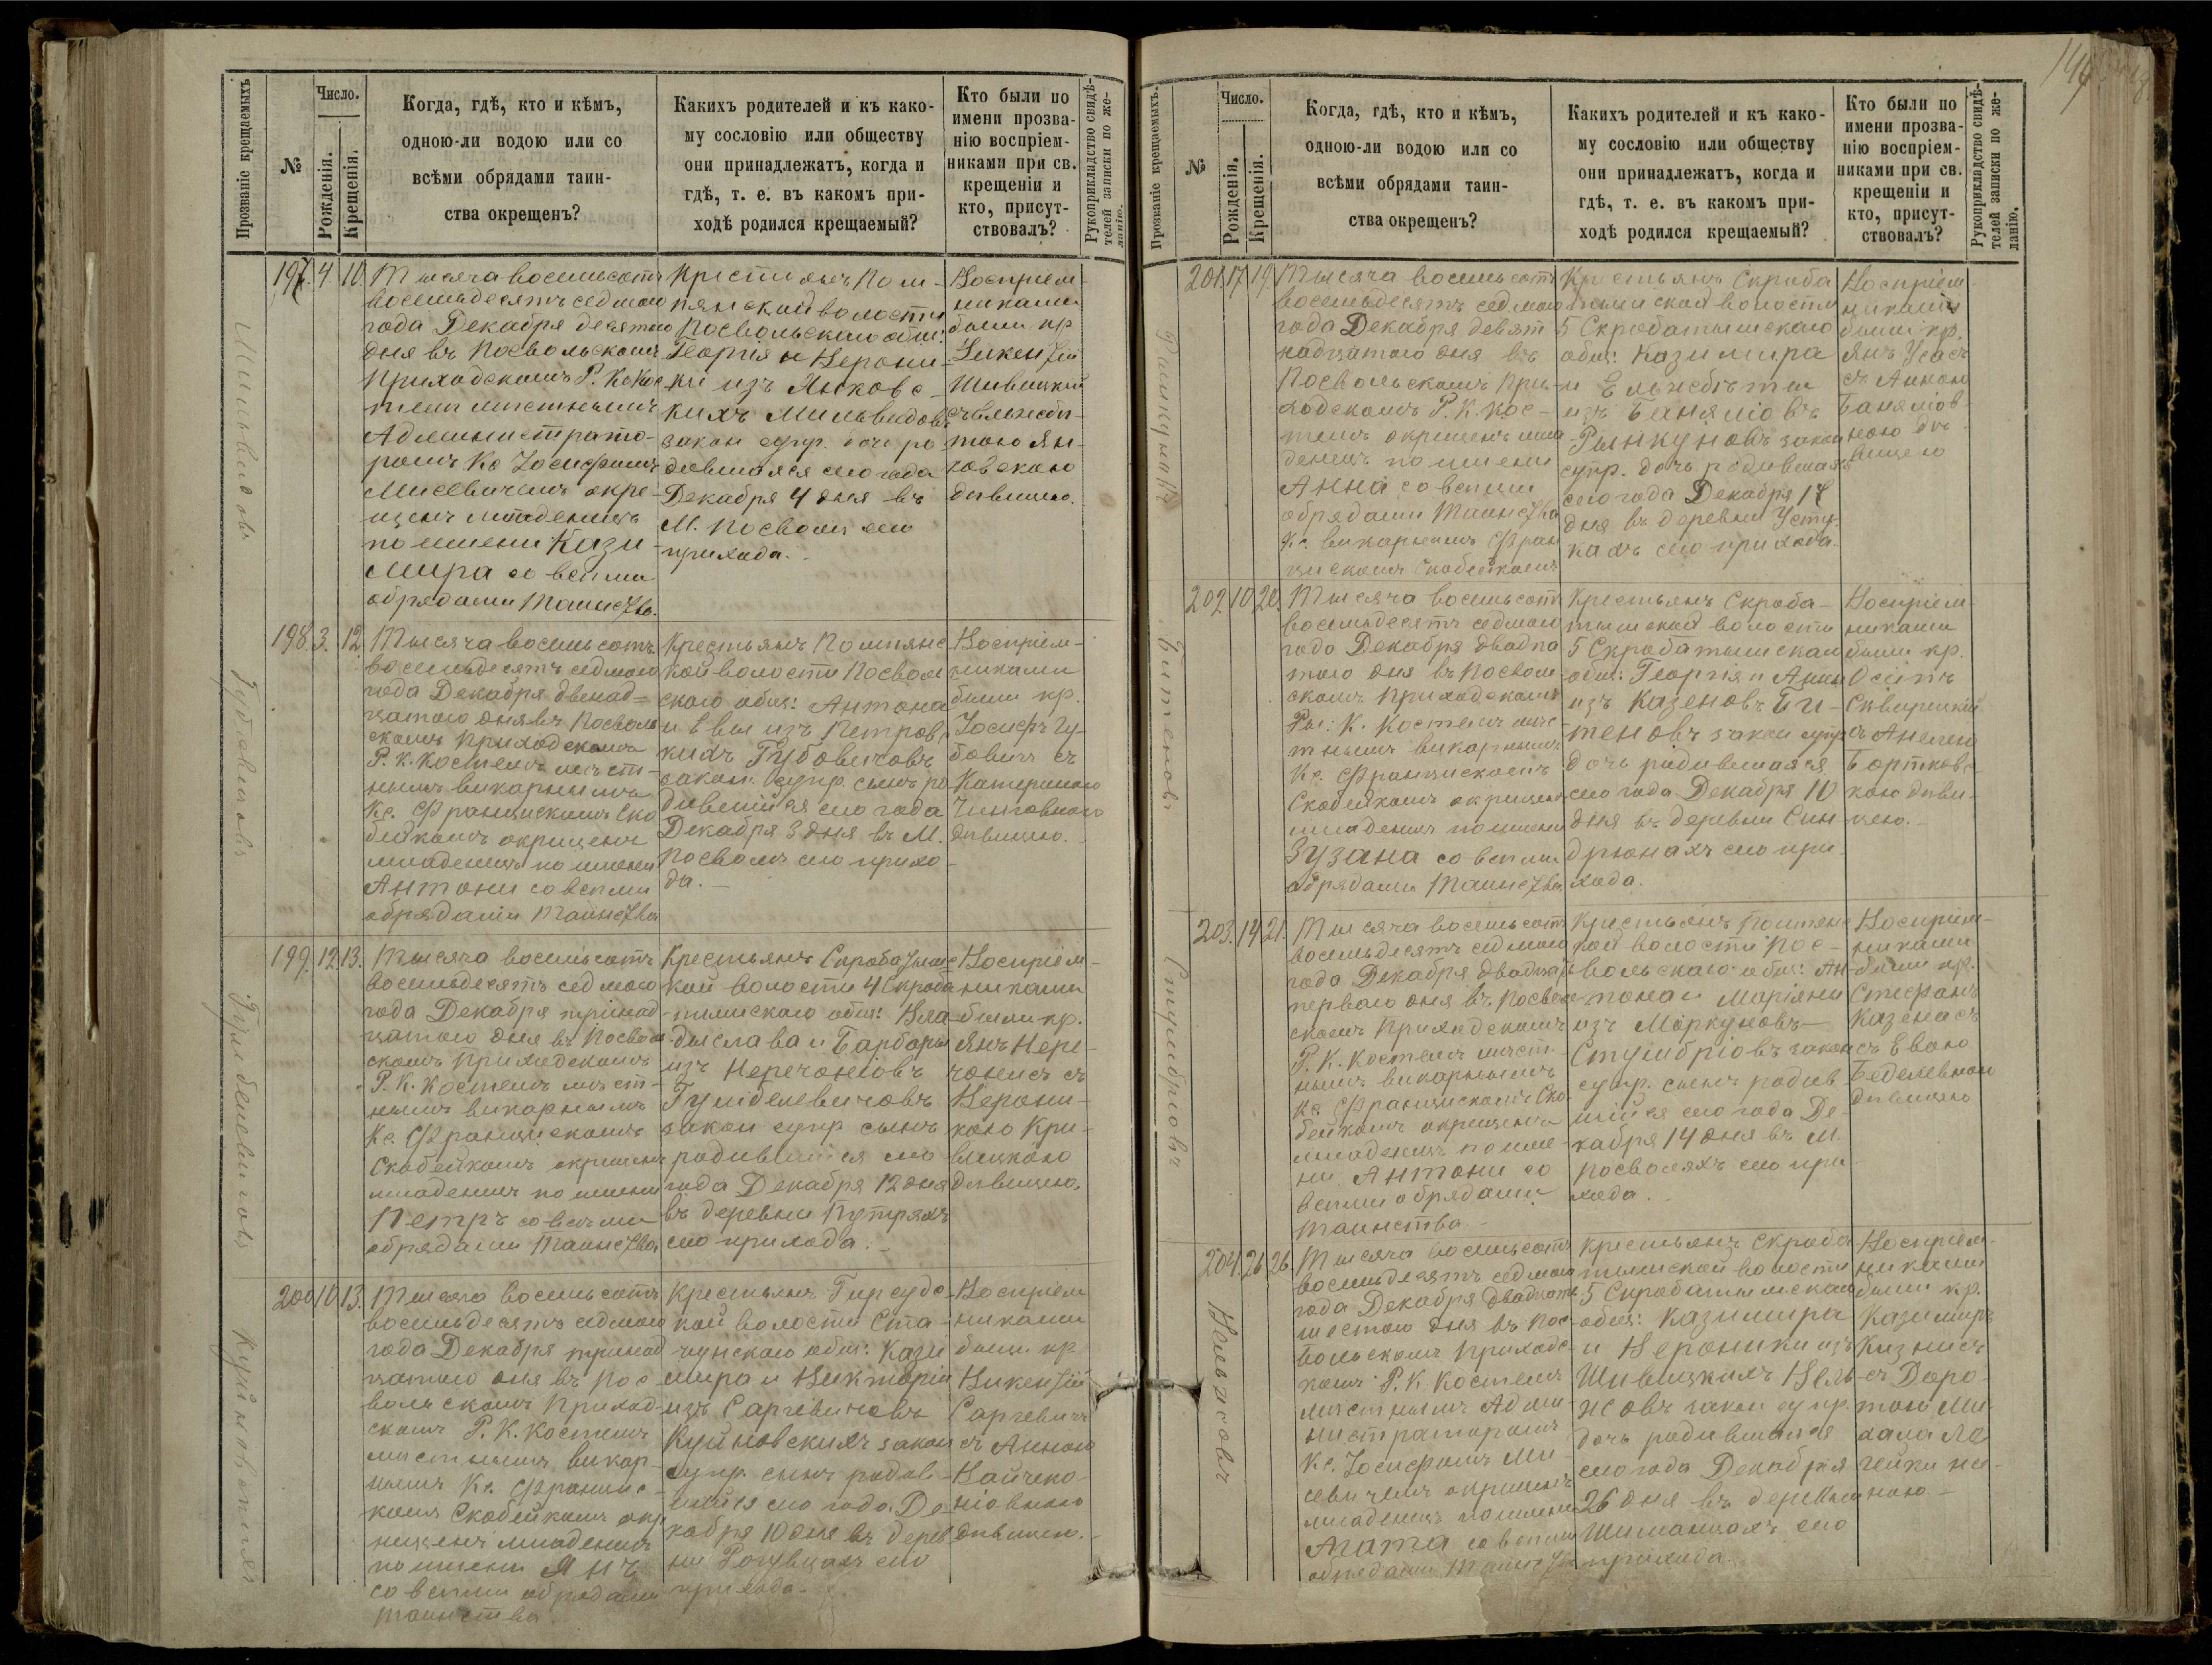 Прозваніе крещаемыхъ
№
Число.
Рожденія.
Крещенія.
Когда, гдѣ, кто и кѣмъ,
одною-ли водою или со
всѣми обрядами таин-
ства окрещенъ?
Какихъ родителей и къ како-
му сословію или обществу
они принадлежатъ, когда и
гдѣ, т. е. въ какомъ при-
ходѣ родился крещаемый?
Кто были по
имени прозва-
нію воспріем-
никами при св.
крещеніи и
кто, присут-
ствовалъ?
Рукоприкладство свидѣ-
телей записки по же-
ланію.
197. 4 10.
Тысяча восемьсотъ
восемьдесятъ седмого
года Декабря десятаго
дня въ Посвольскомъ
Приходскомъ Р. К. Кос
телѣ мѣстнымъ
Администрато-
ромъ Кс Іосифомъ
Мисевичемъ окре-
щенъ младенецъ
по имени Кази-
мира со всѣми
обрядами Таинства.
Крестьянъ Помпянской волости
Посвольскаго общ:
Георгія и Верони-
ки изъ Янковс-
кихъ Мильвидовъ
закон супр. дочь ро
дившаяся сего года
Декабря 4 дня въ
М. Посволи сего
прихода.
Воспріем-
никами
были кр.
Викентій
Шивицкій
съ Ельжбѣ-
тою Ян-
ковскою
дѣвицею.
198. 3. 12
Тысяча восемьсотъ
восемьдесятъ седмого
года Декабря двенад-
цатаго дня въ Посволь
скомъ Приходскомъ
Р. К. Костелѣ мѣст-
нымъ викарнымъ
Кс. Францискомъ Ско
бейкомъ окрещенъ
младенецъ по имени
Антони со всѣми
обрядами Таинства
Крестьянъ Помпянс
кой волости Посволь
скаго общ: Антона
и Евы изъ Петровс
кихъ Губовичовъ
закон. супр. сынъ ро
дившійся сего года
Декабря 3 дня въ М.
Посволѣ сего прихо-
да.
Воспріем-
никами
были кр.
Іосифъ Гу-
бовичъ съ
Катериною
дѣвицею.
199. 12 13.
Тысяча восемьсотъ
восемьдесятъ седмого
года Декабря тринад-
цатаго дня въ Посволь
скомъ Приходскомъ
Р. К. Костелѣ мѣст-
нымъ викарнымъ
Кс. Францискомъ
Скобейкомъ окрещенъ
младенецъ по имени
Петръ со всѣми
обрядами Таинства
Крестьянъ Скробатышс
кой волости 4 Скроба
тышскаго общ: Вла-
дыслава и Барборы
изъ Неречонисовъ
Гумбелевичовъ
закон супр сынъ
родившійся сего
года Декабря 12 дня
въ деревни Путряхъ
сего прихода.
Воспріем-
никами
были кр.
Янъ Нере-
чонисъ съ
Верони-
кою Кри-
вицкою
дѣвицею.
200 10 13.
Тысяча восемьсотъ
восемьдесятъ седмого
года Декабря тринад
цатаго дня въ Пос-
вольскомъ Приход-
скомъ Р. К. Костелѣ
мѣстнымъ викар-
нымъ Кс. Францис-
комъ Скобейкомъ окр
ещенъ младенецъ
по имени Янъ
со всѣми обрядами
таинства.
Крестьянъ Гирсудс-
кой волости Ста-
чунскаго общ: Кази
мира и Викторіи
изъ Саргевичовъ
Куйновскихъ закон
супр. сынъ родив-
шійся сего года Де-
кабря 10 дня въ дерев
ни сего
прихода.
Воспріем
никами
были кр
Викентій
Саргевичъ
съ Анною
дѣвицею.
Мильвидовъ
Губовичовъ
Гумбелевичовъ
Куйновскихъ
Прозваніе крещаемыхъ.
№
Число.
Рожденія.
Крещенія.
Когда, гдѣ, кто и кѣмъ,
одною-ли водою или со
всѣми обрядами таин-
ства окрещенъ?
Какихъ родителей и къ како-
му сословію или обществу
они принадлежатъ, когда и
гдѣ, т. е. въ какомъ при-
ходѣ родился крещаемый?
Кто были по
имени прозва-
нію воспріем-
никами при св.
крещеніи и
кто, присут-
ствовалъ?
Рукоприкладство свидѣ-
телей записки по же-
ланію.
201. 17 19.
Тысяча восемьсотъ
восемьдесятъ седмого
года Декабря девят
надцатаго дня въ
Посвольскомъ При-
ходскомъ Р. К. Кос-
телѣ окрещенъ мла
денецъ по имени
Анна со всѣми
обрядами Таинства
Кс. викарнымъ Фран
цискомъ Скобейкомъ
Крестьянъ Скроба
тышской волости
5 Скробатышскаго
общ: Казимира
и Ельжбѣты
изъ Банялисовъ
Рынкуновъ закон
супр. дочь родившаяся
сего года Декабря 17
дня въ деревни Усту-
кахъ сего прихода.
Воспріем-
никами
были кр.
Янъ Усасъ
съ Анною
Банялісов-
ною дѣ-
вицею
202. 10 20.
Тысяча восемьсотъ
восемьдесятъ седмого
года Декабря двадца
таго дня въ Посволь
скомъ Приходскомъ
Рым. К. Костелѣ мѣс-
тнымъ викарнымъ
Кс. Францискомъ
Скобейкомъ окрещенъ
младенецъ по имени
Зузана со всѣми
обрядами Таинства
Крестьянъ Скроба-
тышской волости
5 Скробатышскаго
общ: Георгія и Анны
изъ Казеновъ Би-
теновъ закон супр
дочь родившаяся
сего года Декабря 10
дня въ деревни Син
дрюнахъ сего при
хода.
Воспріем-
никами
были кр.
Осипъ
Сквирецкій
съ Анелею
Бортковс-
кою дѣви-
цею.
203. 14 21.
Тысяча восемьсотъ
восемьдесятъ седмого
года Декабря двадцать
перваго дня въ Посволь
скомъ Приходскомъ
Р. К. Костелѣ мѣст-
нымъ викарнымъ
Кс. Францискомъ Ско-
бейкомъ окрещенъ
младенецъ по име-
ни Антони со
всѣми обрядами
таинства
Крестьянъ Помпянс
кой волости Пос-
вольскаго общ: Ан-
тона и Маріяны
изъ Моркуновъ
Стумбрісовъ закон
супр. сынъ родив
шійся сего года Де-
кабря 14 дня въ М.
Посволяхъ сего при
хода.
Воспріем-
никами
были кр.
Стефанъ
Казенасъ
съ Евою
дѣвицею
204. 26 26.
Тысяча восемьсотъ
восемьдесятъ седмого
года Декабря двадцать
шестого дня въ Пос-
вольскомъ Приходс-
комъ Р. К Костелѣ
мѣстнымъ Адми-
нистраторомъ
Кс. Іосифомъ Ми-
севичемъ окрещенъ
младенецъ по имени
Агата со всѣми
обрядами Таинства
Крестьянъ Скроба
тышской волости
5 Скробатышскаго
общ: Казимира
и Вероники изъ
Шивицкихъ Вель-
жисовъ закон супр.
дочь родившаяся
сего года Декабря
26 дня въ деревни
Шиманцахъ сего
прихода.
Воспріем-
никами
были кр.
Казимиръ
съ Доро-
тою
женою.
Рынкуновъ
Битеновъ
Стумбрісовъ
Вельжисовъ